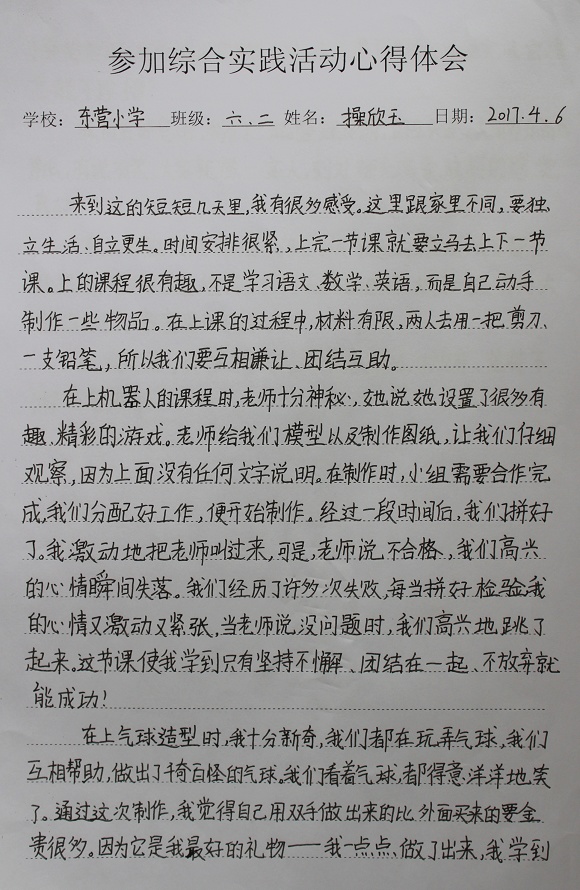 参加综合实践活动心得体会
学校：东营小学 班级：六、二 姓名：操欣玉 日期：2017.4.6
来到这的短短几天里，我有很多感受。这里跟家里不同，要独
立生活、自立更生。时间安排很紧，上完一节课就要立马去上下一节
课。上的课程很有趣，不是学习语文、数学、英语，而是自己动手
制作一些物品。在上课的过程中，材料有限，两人去用一把剪刀、
一支铅笔，所以我们要互相谦让、团结互助。
在上机器人的课程时，老师十分神秘，她说她设置了很多有
趣、精彩的游戏。老师给我们模型以及制作图纸，让我们仔细
观察，因为上面没有任何文字说明。在制作时，小组需要合作完
成，我们分配好工作，便开始制作。经过一段时间后，我们拼好
了。我激动地把老师叫过来，可是，老师说不合格，我们高兴
的心情瞬间失落。我们经历了许多次失败，每当拼好检验，我
的心情又激动又紧张，当老师说没问题时，我们高兴地跳了
起来。这节课使我学到只有坚持不懈、团结在一起、不放弃就
能成功！
在上气球造型时，我十分新奇，我们都在玩弄气球，我们
互相帮助，做出了千奇百怪的气球。我们看着气球，都得意洋洋地笑
了。通过这次制作，我觉得自己用双手做出来的比外面买来的要金
贵很多。因为它是我最好的礼物——我一点点做了出来，我学到